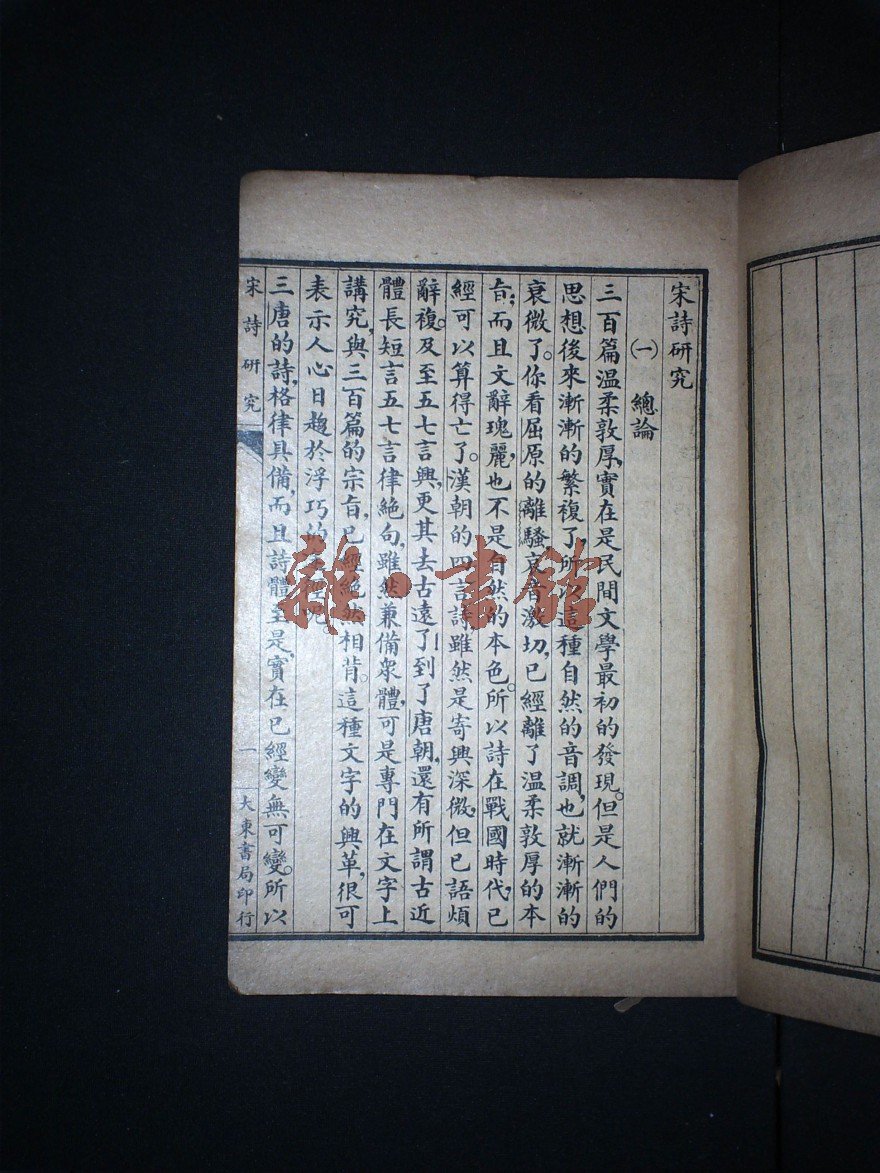 宋詩研究
㈠ 總論
三百篇温柔敦厚,實在是民間文學最初的發現。但是人們的
思想後來漸漸的繁複了,所以這種自然的音調,也就漸漸的
衰微了。你看屈原的離騷哀音激切,已經離了温柔敦厚的本
旨;而且文辭瑰麗,也不是自然的本色。所以詩在戰國時代,已
經可以算得亡了。漢朝的四言詩,雖然是寄興深微,但已語煩
辭複。及至五七言興,更其去古遠了!到了唐朝,還有所謂古近
體長短言五七言律絕句,雖然兼備衆體,可是專門在文字上
講究,與三百篇的宗旨,已經絕然相背。這種文字的興革,很可
表示人心日趨於浮巧的呢。
三唐的詩,格律具備,而且詩體至是,實在已經變無可變。所以
宋詩研究
一
大東書局印行
雜·書館